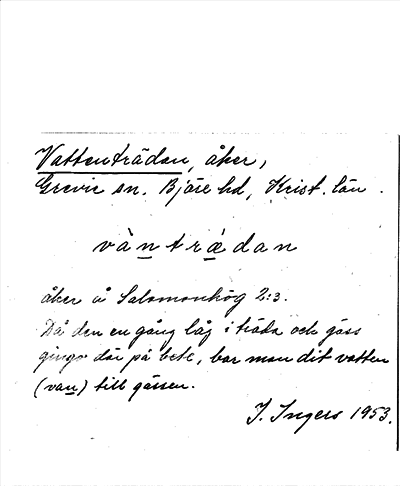 Vattenträdan, åker,
Grevie sn. Bjäre hd, Krist. län.
vàn̲trä̲dan
åker å Salomonhög 2:3.
Då den en gång låg i träda och gäss
gingo där på bete, bar man dit vatten
(van̲) till gässen.
I. Ingers 1953.